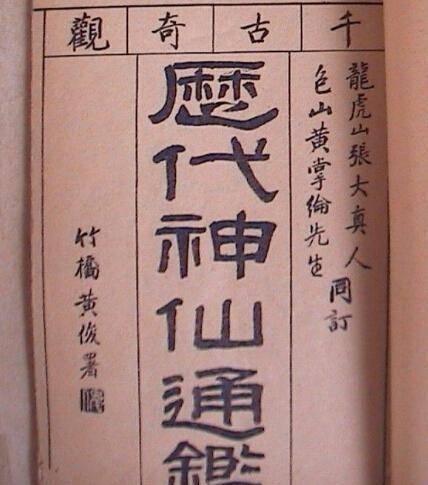 千古奇觀
龍虎山張大真人
包山黃掌綸先生
同訂
歷代神仙通鑑
竹橋黃俊署